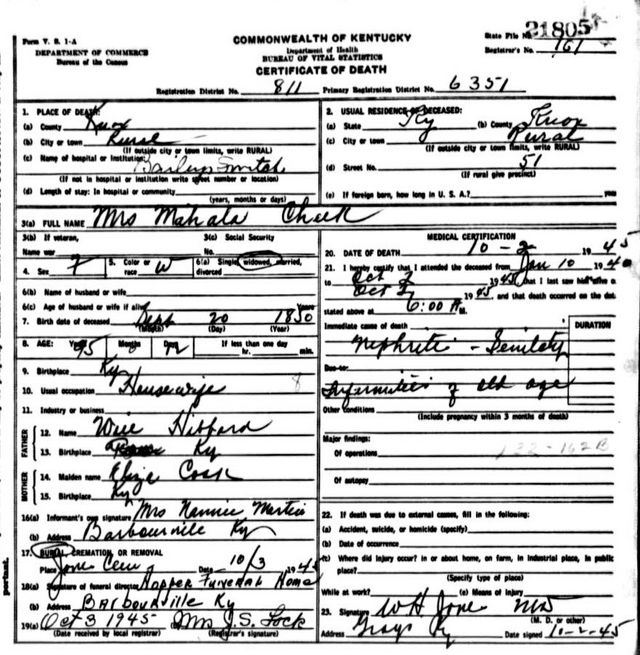 21805
Form V. S. 1-A
COMMONWEALTH OF KENTUCKY
State File No.
DEPARTMENT OF COMMERCE
Department of Health
Registrar's No. 161
Bureau of the Census
BUREAU OF VITAL STATISTICS
CERTIFICATE OF DEATH
Registration District No. 811 Primary Registration District No. 6351
1. PLACE OF DEATH:
(a) County Knox
(b) City or town Rural
(If outside city or town limits, write RURAL)
(c) Name of hospital or institution:
(If not in hospital or institution write street number or location)
(d) Length of stay: In hospital or community
(years, months or days)
2. USUAL RESIDENCE OF DECEASED:
(a) State Ky (b) County Knox
(c) City or town Rural
(If outside city or town limits, write RURAL)
(d) Street No. 51
(If rural give precinct)
(e) If foreign born, how long in U. S. A.? years
3(a) FULL NAME Mrs Mahala Cheek
3(b) If veteran, 3(c) Social Security
Name war No.
4. Sex F 5. Color or race W 6(a) Single, widowed, married, divorced
6(b) Name of husband or wife
6(c) Age of husband or wife if alive Years
7. Birth date of deceased Sept 20 1850
(Month) (Day) (Year)
8. AGE: Years 95 Months Days 12 If less than one day
hr. min.
9. Birthplace Ky
10. Usual occupation Housewife 8
11. Industry or business
FATHER
12. Name Hibbard
13. Birthplace Ky
MOTHER
14. Maiden name
15. Birthplace Ky
16(a) Informant's own signature Mrs Nannie Martin
(b) Address Barbourville Ky
17. BURIAL, CREMATION, OR REMOVAL
Place Jone Cem Date 10/3 1945
18(a) Signature of funeral director Hopper Funeral Home
(b) Address Barbourville Ky
19(a) Oct 3 1945 Mrs J. S. Lock
(Date received by local registrar) (Registrar's signature)
MEDICAL CERTIFICATION
20. DATE OF DEATH 10-2 1945
21. I hereby certify that I attended the deceased from Jan 10 1940
to Oct 2 1945 that I last saw h alive on
Oct 2 1945, and that death occurred on the date
stated above at 6:00 A M.
Immediate cause of death DURATION
Nephrites - Senility
Due to
Infirmities of old age
Other Conditions
(Include pregnancy within 3 months of death)
Major findings:
Of operations 132-162B
Of autopsy
22. If death was due to external causes, fill in the following:
(a) Accident, suicide, or homicide (specify)
(b) Date of occurrence
(c) Where did injury occur? in or about home, on farm, in industrial place, in public
place?
(Specify type of place)
While at work? (e) Means of injury
23. Signature W H Jone MD
(M. D. or other)
Address Grays Ky Date signed 10-2-45